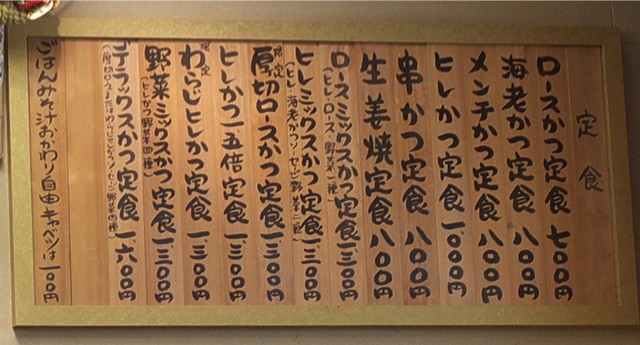 定食
ロースかつ定食 七〇〇円
海老かつ定食 八〇〇円
メンチかつ定食 八〇〇円
ヒレかつ定食 一、〇〇〇円
串かつ定食 八〇〇円
生姜焼定食 八〇〇円
ロースミックスかつ定食 一、三〇〇円
(ヒレ・ロース・野菜一種)
ヒレミックスかつ定食 一、三〇〇円
(ヒレ・海老かつ・ソーセージ・野菜二種)
限定 厚切ロースかつ定食 一、三〇〇円
ヒレかつ一五倍定食 一、三〇〇円
限定 わらじヒレかつ定食 一、三〇〇円
野菜ミックスかつ定食 一、三〇〇円
(ヒレかつ・野菜四種)
デラックスかつ定食 一、六〇〇円
(厚切ロースまたはわらじヒレかつ・ソーセージ・野菜四種)
ごはんみそ汁おかわり自由キャベツは一〇〇円